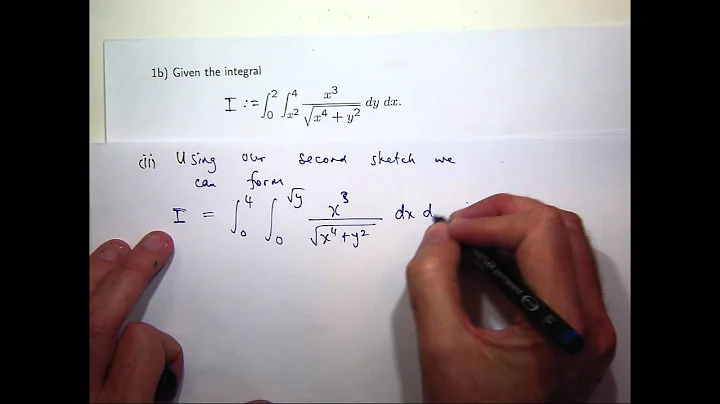 1b) Given the integral
I := ∫₀² ∫ₓ²⁴ x³/√(x⁴ + y²) dy dx.
(ii) Using our second sketch we
can form
I = ∫₀⁴ ∫₀^√y x³/√(x⁴+y²) dx d